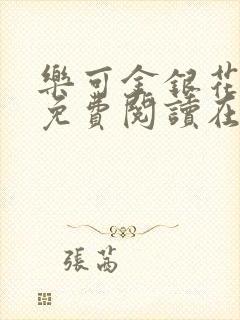 樂可金銀花
免費閱讀在
張茜